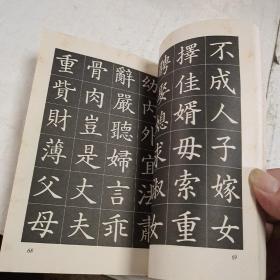 幼内外宜法肅
辭嚴聽婦言乖
骨肉豈是丈夫
重貲財薄父母
68
不成人子嫁女
擇佳婿毋索重
聘娶媳求淑
69